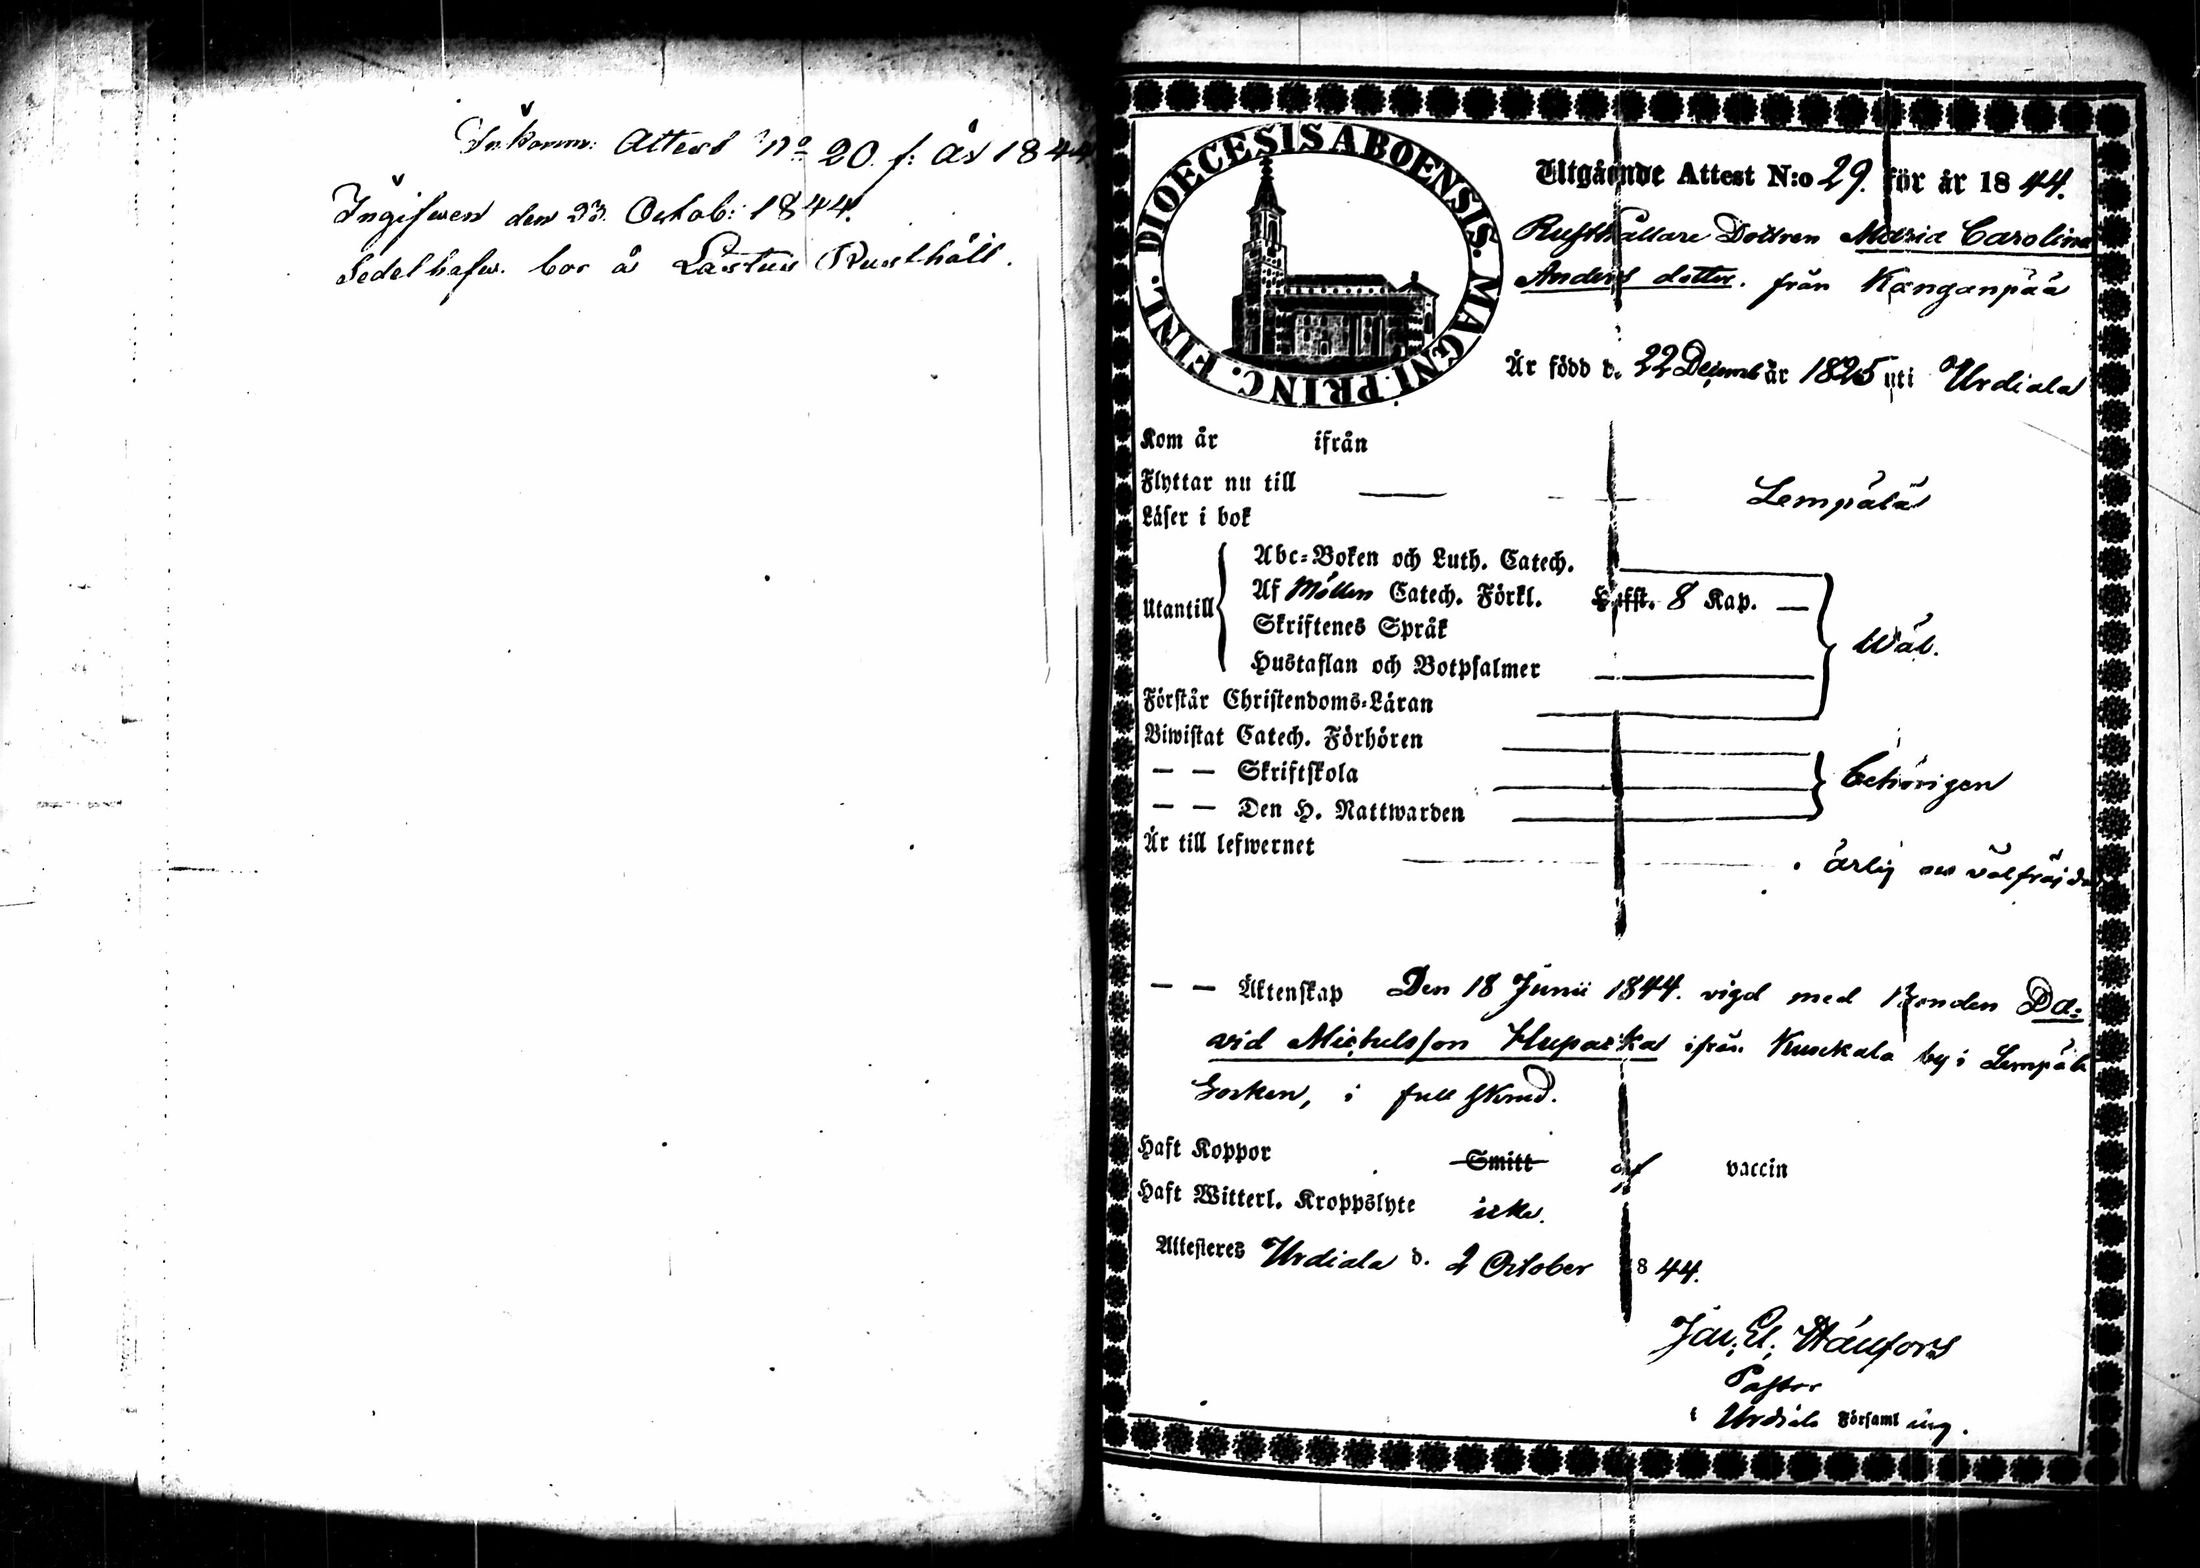 Inkomm: Attest No 20. f: år 1844
Ingifven den 23. Octob: 1844.
Sedelhafv. bor å Lastus Rusthåll.
DIOECESIS ABOENSIS. MAGNI. PRINC. FINL.
Utgående Attest N:o 29. för år 1844.
Rusthållare Dottren Maria Carolina
Anders dotter. från Kanganpää
Är född d. 22 Decemb år 1825 uti Urdiala
Kom år ifrån
Flyttar nu till — Lempälä
Läser i bok
Utantill
Abc-Boken och Luth. Catech.
Af Möllers Catech. Förkl. Hufst. 8 Kap. —
Skriftenes Språk
Hustaflan och Botpsalmer
Wäl.
Förstår Christendoms-Läran
Biwistat Catech. Förhören
— — Skriftskola
behörigen
— — Den H. Nattwarden
Är till lefwernet ärlig och välfräjdad
— — Äktenskap Den 18 Junii 1844. vigd med Bonden Da-
vid Michelsson Huparka ifrån Kuockala by i Lempälä
Socken, i full skrud.
Haft Koppor Smitt af vaccin
Haft Witterl. Kroppslyte icke.
Attesteres Urdiala d. 2 October 1844.
Pastor
i Urdiala Församl ing.